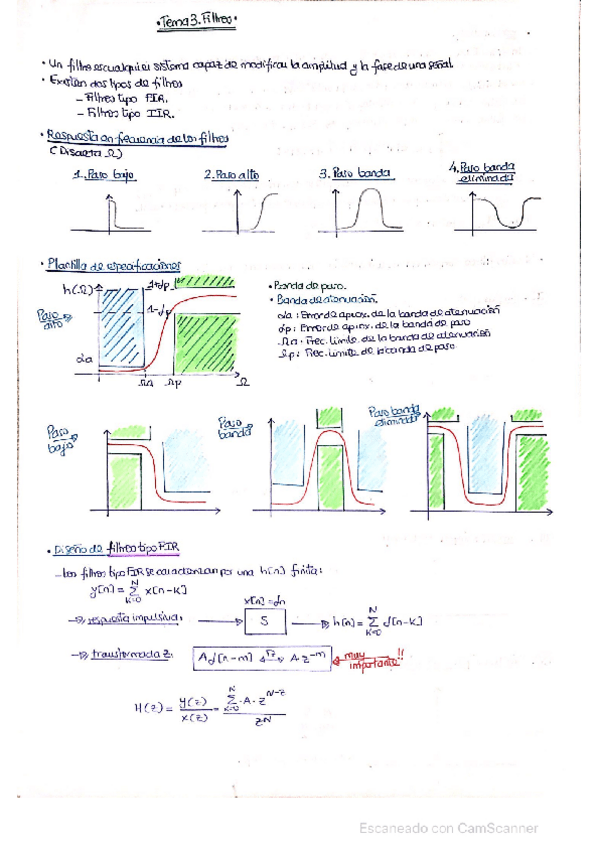 • Tema 3. Filtros •
• Un filtro es cualquier sistema capaz de modificar la amplitud y la fase de una señal
• Existen dos tipos de filtros
– Filtros tipo FIR.
– Filtros tipo IIR.
• Respuesta en frecuencia de los filtros
(Discreta Ω)
1. Paso bajo
2. Paso alto
3. Paso banda
4. Paso banda
eliminada
• Plantilla de especificaciones
h(Ω)
1+δp
1-δp
Paso
alto
δa
Ωa
Ωp
Ω
• Banda de paso.
• Banda de atenuación.
δa: Error de aprox. de la banda de atenuación
δp: Error de aprox. de la banda de paso
Ωa: Frec. límite de la banda de atenuación
Ωp: Frec. límite de la banda de paso
Paso
bajo
Paso
banda
Paso banda
eliminada
• Diseño de filtros tipo FIR
– Los filtros tipo FIR se caracterizan por una h[n] finita:
y[n] = Σ x[n-k]
N
k=0
x[n] = δn
→ respuesta impulsiva:
S
h[n] = Σ δ[n-k]
N
k=0
→ transformada z:
A δ[n-m] ↔ A·z^-m
muy
importante!!
H(z) = y(z)/x(z) = Σ·A·z^N-z / zN
N
k=0
Escaneado con CamScanner